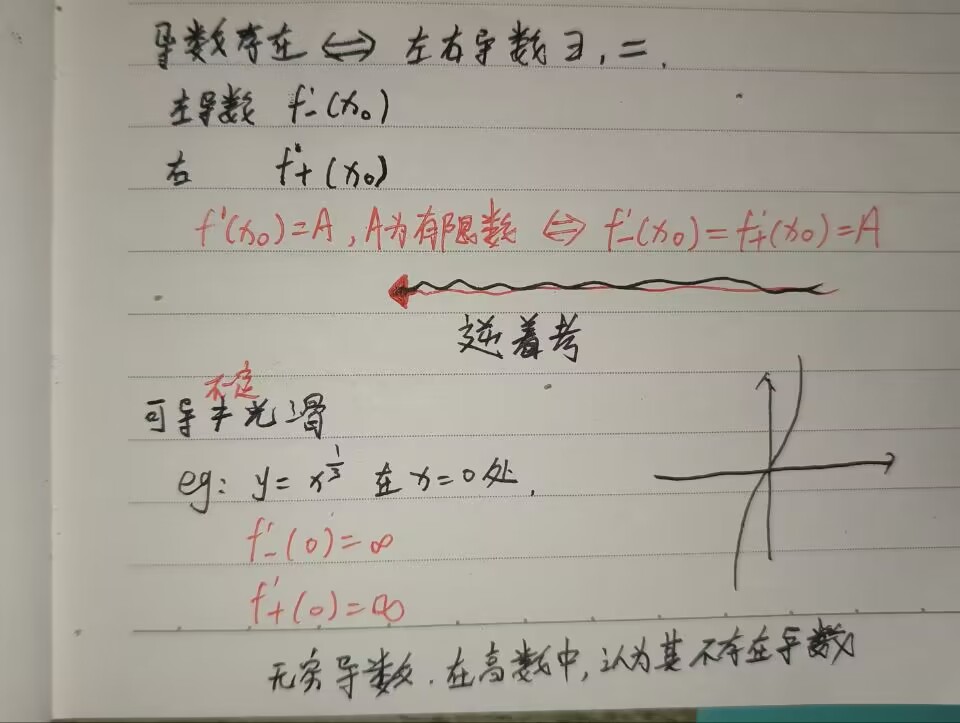 导数存在 ⇔ 左右导数∃,=.
左导数 f'₋(x₀)
右 f'₊(x₀)
f'(x₀)=A,A为有限数 ⇔ f'₋(x₀)=f'₊(x₀)=A
逆着考
不一定
可导≠光滑
eg: y=x^{1/3} 在x=0处,
f'₋(0)=∞
f'₊(0)=∞
无实导数.在高数中,认为其不存在导数